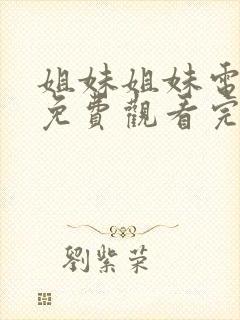 姐妹姐妹電
免費觀看完
劉紫荣